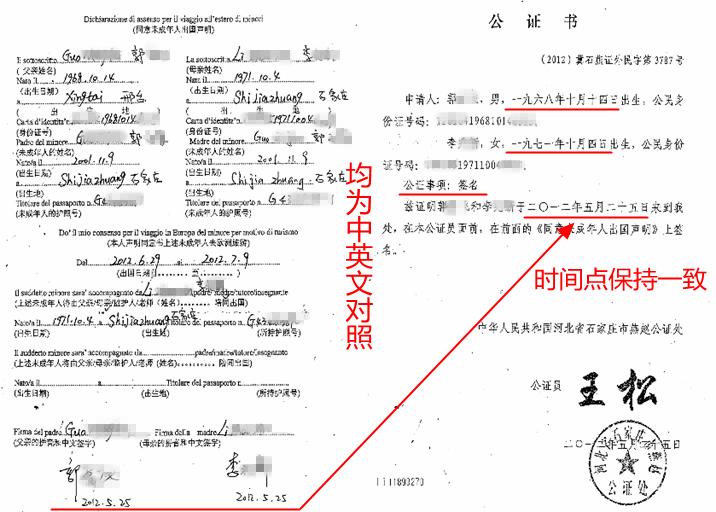 Dichiarazione di assenso per il viaggio all'estero di minori
(同意未成年人出国声明)
Il sottoscritto Guo 郭
(父亲姓名)
Nato il 1968.10.14
(出生日期)
a Xingtai 邢台
(出生地)
Carta d'identita'n. 19681014
(身份证号)
Padre del minore Guo
(未成年人的姓名)
Nato/a il 2001.11.9
(出生日期)
a Shijiazhuang 石家庄
(出生地)
Titolare del passaporto n. G4
(未成年人的护照号)
La sottoscritta Li
(母亲姓名)
Nata il 1971.10.4
(出生日期)
a Shijiazhuang 石家庄
(出生地)
Carta d'identita'n. 19711004
(身份证号)
Madre del minore Guo
(未成年人的姓名)
Nato/a il 2001.11.9
(出生日期)
a Shijia zhuang 石家庄
(出生地)
Titolare del passaporto n. G4
(未成年人的护照号)
Do' il mio consenso per il viaggio in Europa del minore per motivo di turismo
(本人声明同意书上述未成年人去欧洲旅游)
Dal 2012.6.29 al 2012.7.9
(出国日期)
Il suddetto minore sara' accompagnato da Li padre/madre/tutore/insegnante
(上述未成年人将由父亲/母亲/监护人/老师 (姓名) 陪同出国)
Nato/a il 1971.10.4 a Shijiazhuang 石家庄 titolare del passaporto n. G
(出生日期) (出生地) (所持护照号)
Il suddetto minore sara' accompagnato da padre/madre/tutore/insegnante
(上述未成年人将由父亲/母亲/监护人/老师 (姓名) 陪同出国)
Nato/a il a Titolare del passaporto n.
(出生日期) (出生地) (所持护照号)
Firma del padre Guo Firma della madre Li
(父亲的拼音和中文签字) (母亲的拼音和中文签字)
郭 李
2012.5.25 2012.5.25
均为中英文对照
公 证 书
(2012) 冀石燕证外民字第3787号
申请人:郭 ,男,一九六八年十月十四日出生,公民身
份证号码: 19681014
李 ,女,一九七一年十月四日出生,公民身份
证号码: 19711004
公证事项:签名
兹证明郭 和李 于二〇一二年五月二十五日来到我
处,在本公证员面前,在前面的《同意未成年人出国声明》上签
名。
时间点保持一致
中华人民共和国河北省石家庄市燕赵公证处
公证员 王松
二〇一二年五月二十五日
河北省石家庄
公证处